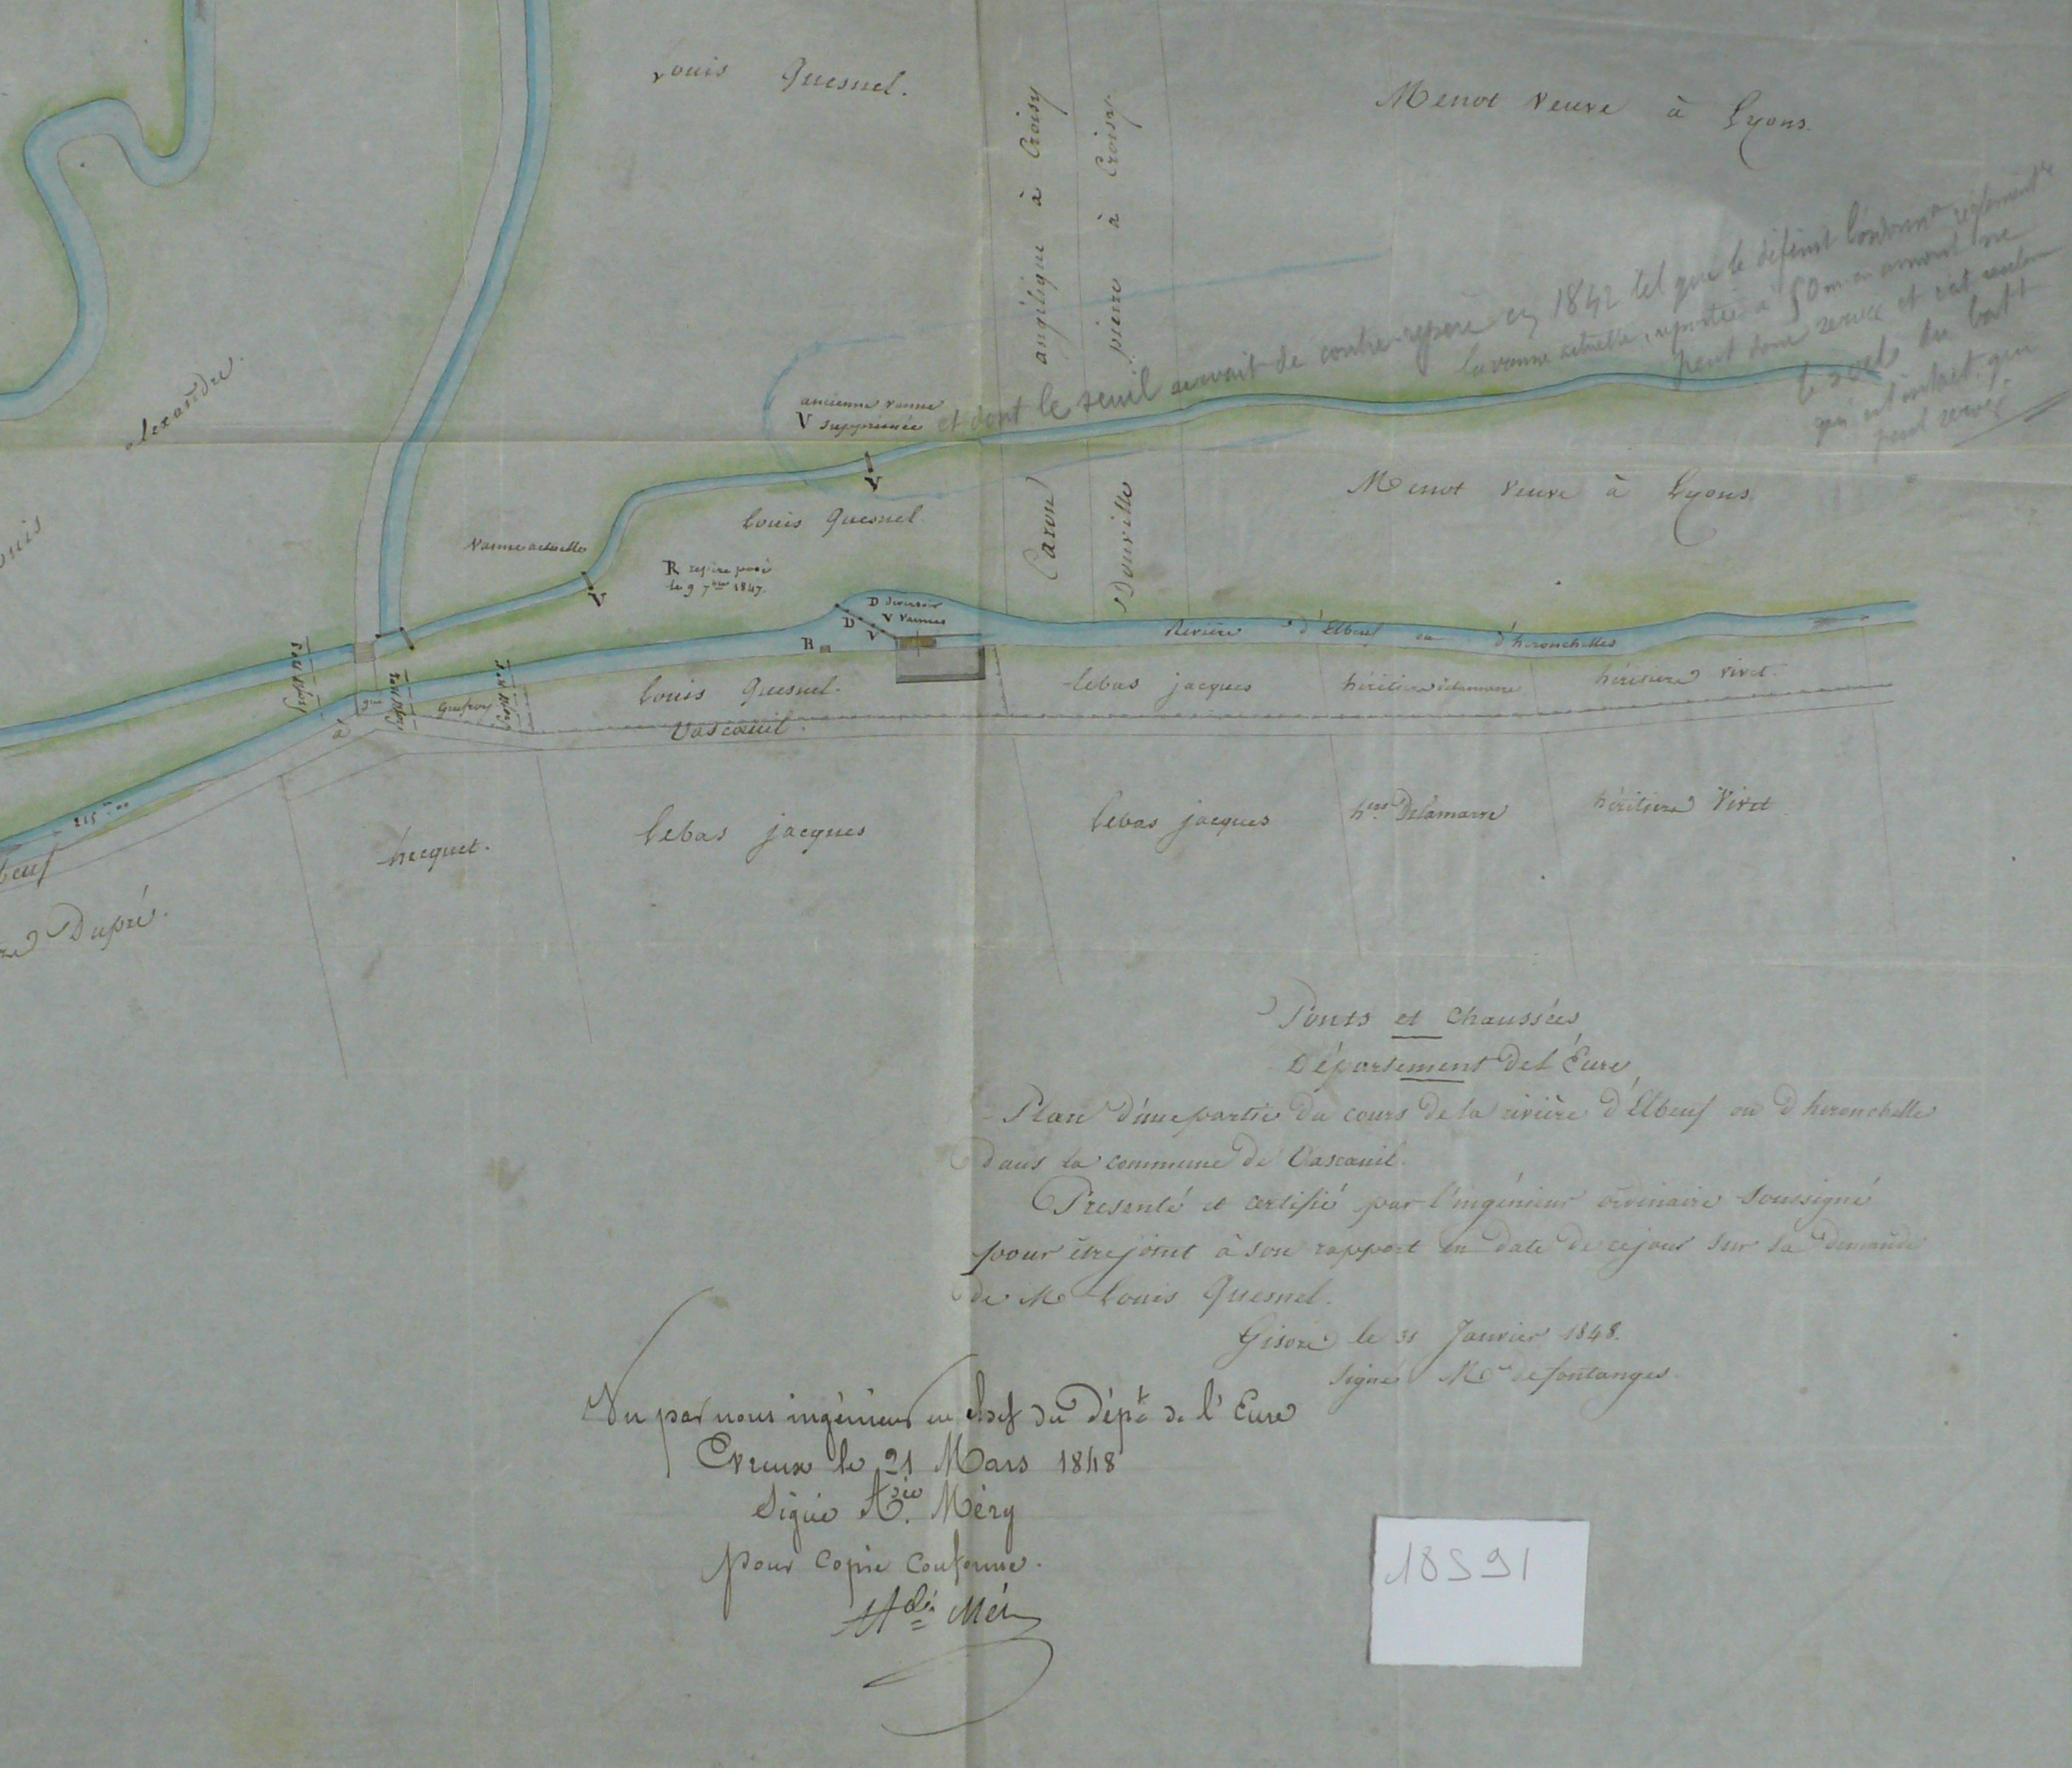 Louis Quesnel.
Menot veuve à Lyons.
angélique à Croisy
pierre à Croisy
alexandre.
et dont le seuil servait de contre-repère en 1842 tel que le définit l'ordonnce réglementre
la vanne actuelle, reportée à 50m en amont ne
peut donc servir et c'est seulem
le seuil du
qui est intact, qui
peut servir
ancienne vanne
V supprimée
V
Menot veuve à Lyons
Louis Quesnel.
Caron
Douville
Vanne actuelle
V
R repère posé
le 9 7bre 1847.
D déversoir
V Vannes
D
V
R
Rivière d'Elbeuf ou d'heronchelles
Louis Quesnel.
lebas jacques
héritiers delamarre
héritiers vivet.
Vascœuil.
à
215m00
beuf
hecquet.
lebas jacques
lebas jacques
hers Delamarre
héritiers Vivet
Dupré.
Ponts et Chaussées
Département de l'Eure
Plan d'une partie du cours de la rivière d'Elbeuf ou d'heronchelle
dans la commune de Vascœuil.
Presenté et certifié par l'ingénieur ordinaire soussigné
pour être joint à son rapport en date de ce jour sur la demande
de Mr Louis Quesnel.
Gisors le 31 Janvier 1848.
Signé Mr de fontanges.
Vu par nous ingénieur en chef du Dépt de l'Eure
Evreux le 21 Mars 1848
Signé Méry
pour copie conforme.
18591